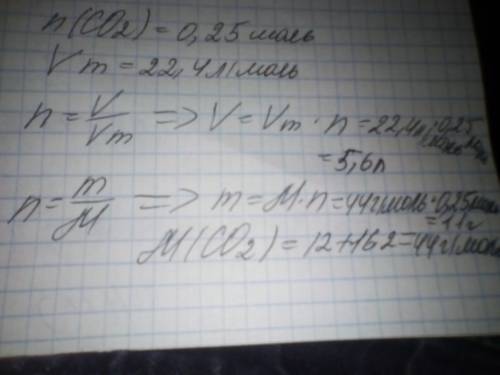 n(CO2) = 0,25 моль
Vm = 22,4 л/моль
n = V/Vm => V = Vm · n = 22,4 л/моль · 0,25
= 5,6 л
n = m/M => m = M·n = 44 г/моль · 0,25 моль
= 11 г
M(CO2) = 12+162=44 г/моль